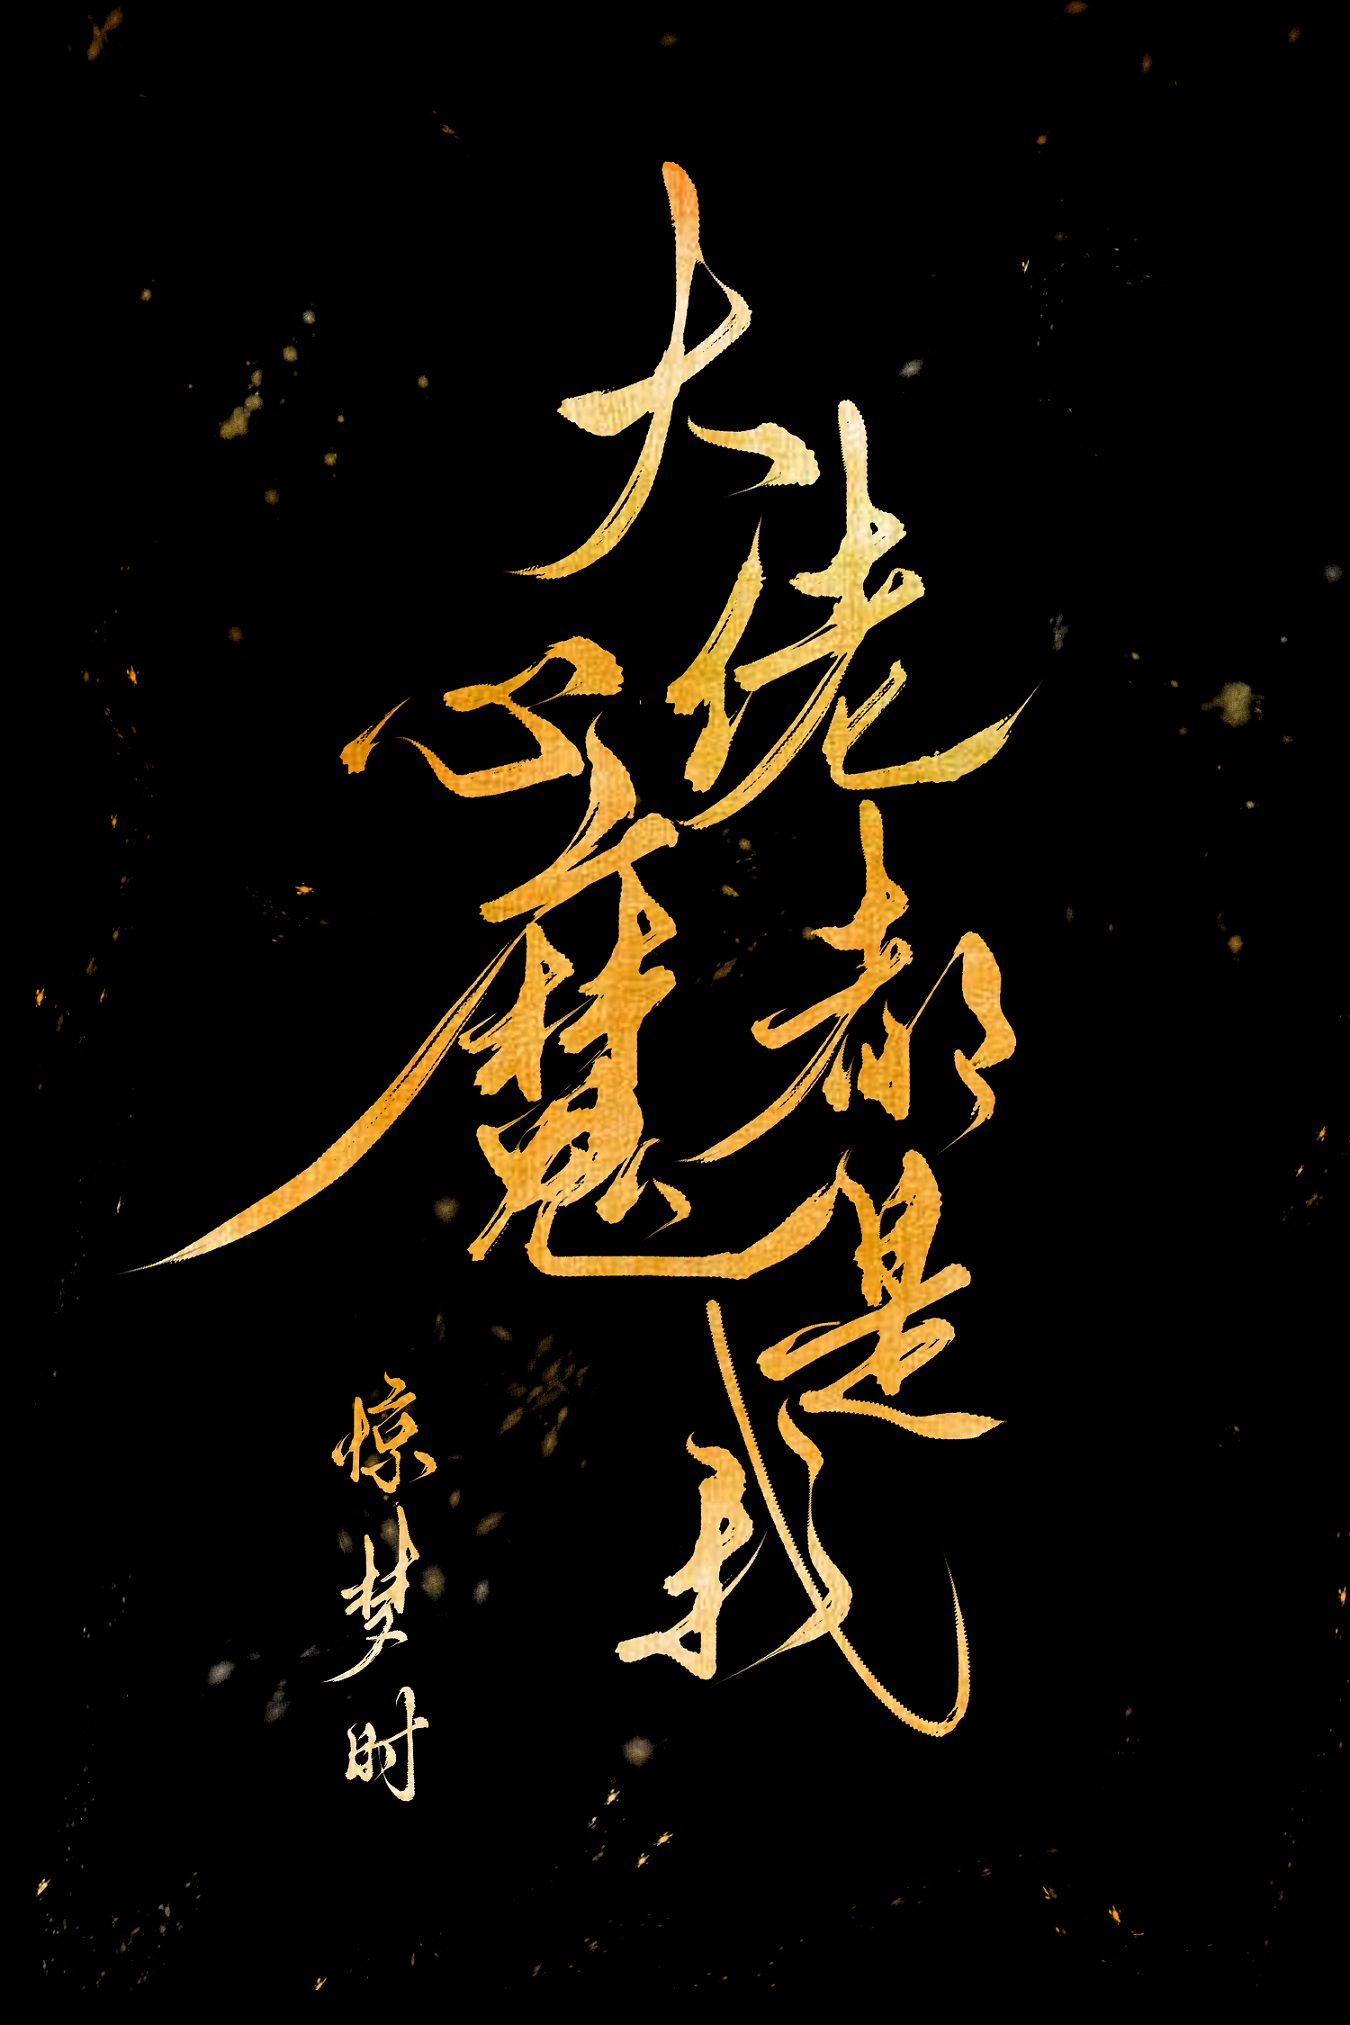 大佬都是我
心魔
惊梦时